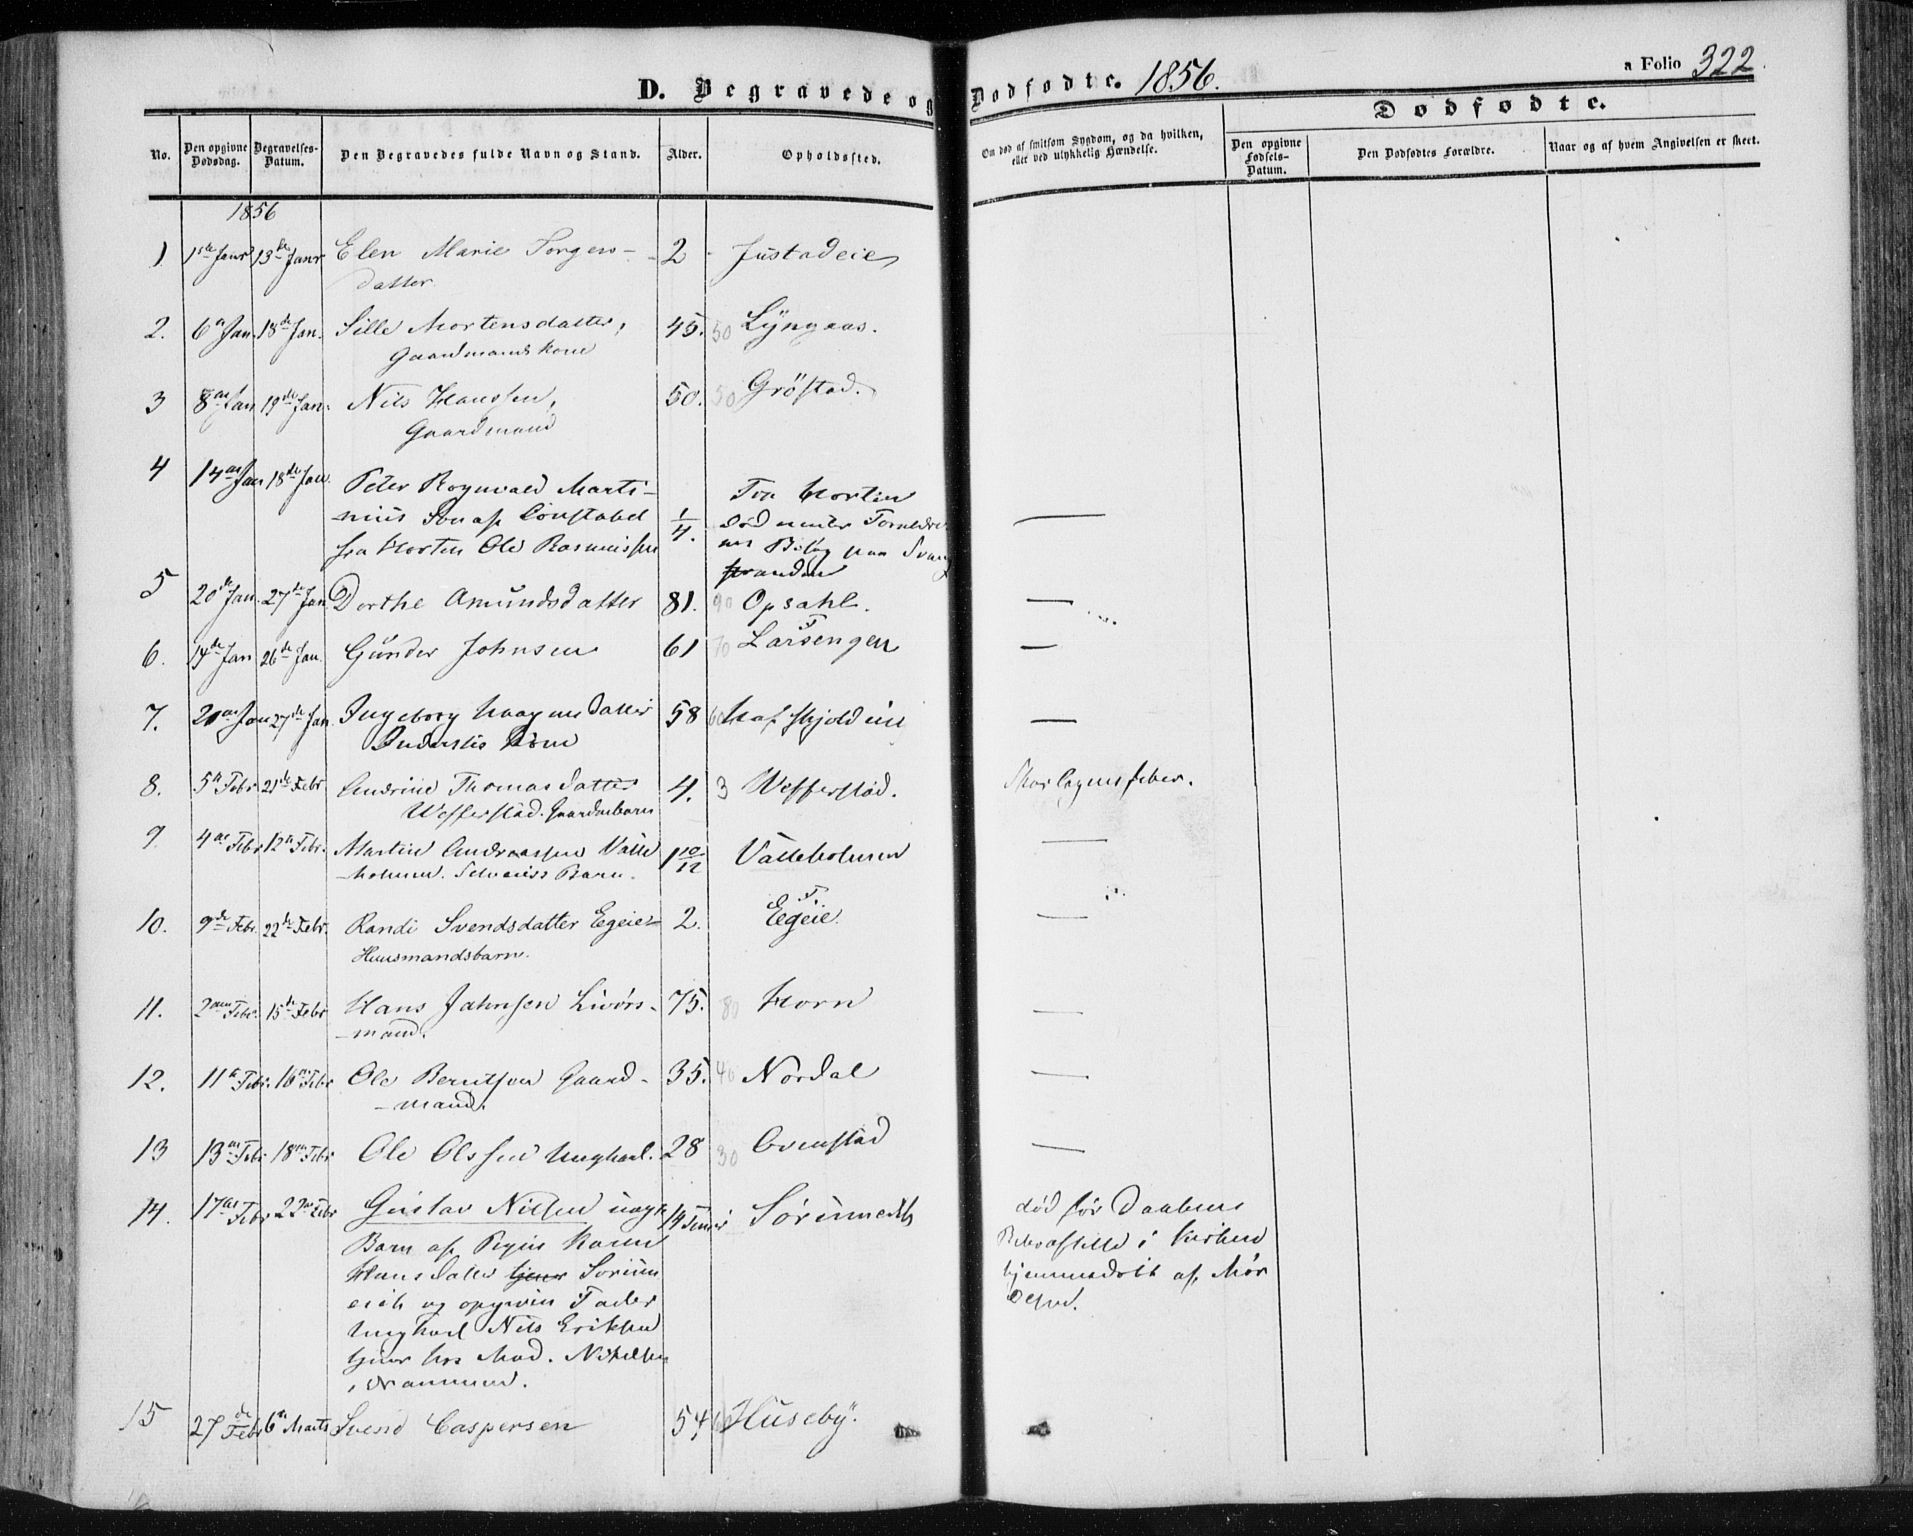 D. Begravede og Dødfødte. 1856.
a Folio 322.
Dødfødte.
No.
Den opgivne Dødsdag.
Begravelses-Datum.
Den Begravedes fulde Navn og Stand.
Alder.
Opholdssted.
Om død af smitsom Sygdom, og da hvilken, eller ved ulykkelig Hændelse.
Den opgivne Fødsels-Datum.
Den Dødfødtes Forældre.
Naar og af hvem Angivelsen er skeet.
1856
1 1ste Janr 13de Janr Elen Marie Torgers- 2 Justadeie
datter
2. 6te Jan. 18de Jan. Sille Mortensdatter, 45. 50 Lÿngaas.
Gaardmands Kone
3 8de Jan 19de Jan. Nils Hanssen, 50. 50 Gröstad.
Gaardmand
4 14de Jan 18de Jan. Peter Rognvald Marti-
nius Søn af Constabel 1/4. Fra Horten
fra Horten Ole Rasmussen død under
paa Svang
stranden
5 20de Jan. 27de Jan Dorthe Amundsdatter 81. 90 Opsahl. —
6. 14de Jan 26de Jan. Gunder Johnsen 61 70 Larsengen —
7. 20de Jan 27de Jan. Ingeborg Haagensdatter 58 60 —
Inderstes Kone
8. 5te Febr 21de Febr Andrine Thomasdatter 4. 3 Wefferstad. Skarlagensfeber.
Wefferstad. Gaardmbarn
9 4de Febr 12te Febr. Martin Andreassen Valle 1 10/12 Valleholmen —
holmen. Selveiers Barn.
10. 9de Febr. 22de Febr. Randi Svendsdatter Egeie- 2. Egeie. —
Huusmandsbarn.
11. 2den Febr. 15de Febr Hans Jahnsen Livørs- 75. 80 Horn —
mand.
12. 11te Febr. 16de Febr Ole Berntsen Gaard- 35. 40 Nordal —
mand.
13 13de Febr. 18de Febr Ole Olssen Ungkarl. 28 30 —
14. 17de Febr 22de Febr Gustav Nielsen uægt 14 Timer
Barn af Kare
Hansdatter tjener
og opgiven Fader
Ungkarl Nils Eriksen
tjener hos Mad. Nikelsen
i Drammen.
død før Daaben
Bekræftelse i Kirken
hjemmedøbt af
15 27de Febr 6te Marts Svend Caspersen 54 60 Huseby.